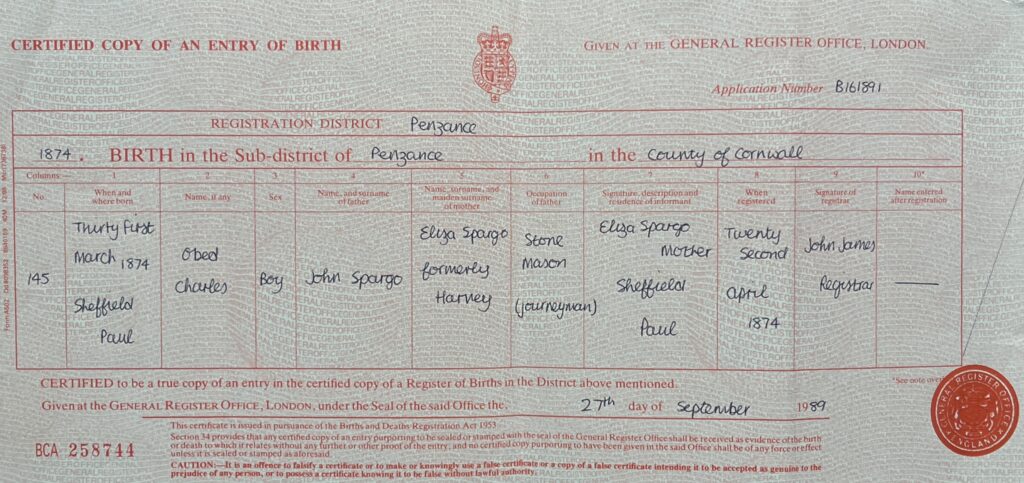 CERTIFIED COPY OF AN ENTRY OF BIRTH
GIVEN AT THE GENERAL REGISTER OFFICE, LONDON.
Application Number B161891
REGISTRATION DISTRICT Penzance
1874. BIRTH in the Sub-district of Penzance in the County of Cornwall
Columns:— 1 2 3 4 5 6 7 8 9 10*
No. When and where born Name, if any Sex Name, and surname of father Name, surname, and maiden surname of mother Occupation of father Signature, description and residence of informant When registered Signature of registrar Name entered after registration
145
Thirty First
March 1874
Sheffield
Paul
Obed
Charles
Boy
John Spargo
Eliza Spargo
formerly
Harvey
Stone
Mason
(journeyman)
Eliza Spargo
Mother
Sheffield
Paul
Twenty
Second
April
1874
John James
Registrar
CERTIFIED to be a true copy of an entry in the certified copy of a Register of Births in the District above mentioned.
*See note
Given at the GENERAL REGISTER OFFICE, LONDON, under the Seal of the said Office the, 27th day of September 1989
This certificate is issued in pursuance of the Births and Deaths Registration Act 1953
Section 34 provides that any certified copy of an entry purporting to be sealed or stamped with the seal of the General Register Office shall be received as evidence of the birth
or death to which it relates without any further or other proof of the entry, and no certified copy purporting to have been given in the said Office shall be of any force or effect
unless it is sealed or stamped as aforesaid.
BCA 258744
CAUTION:—It is an offence to falsify a certificate or to make or knowingly use a false certificate or a copy of a false certificate intending it to be accepted as genuine to the
prejudice of any person, or to possess a certificate knowing it to be false without lawful authority.
GENERAL REGISTER OFFICE
ENGLAND